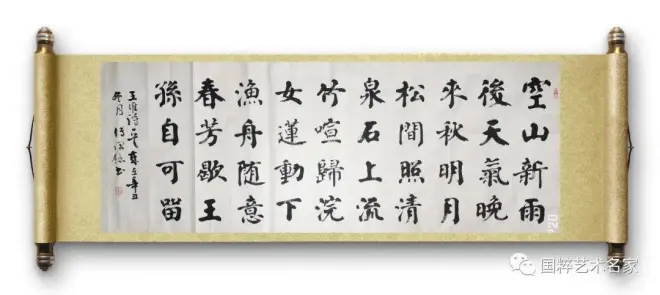 空山新雨
後天氣晚
來秋明月
松間照清
泉石上流
竹喧歸浣
女蓮動下
漁舟隨意
春芳歇王
孫自可留
王維詩一首歲在辛丑
冬月書
'20
国粹艺术名家